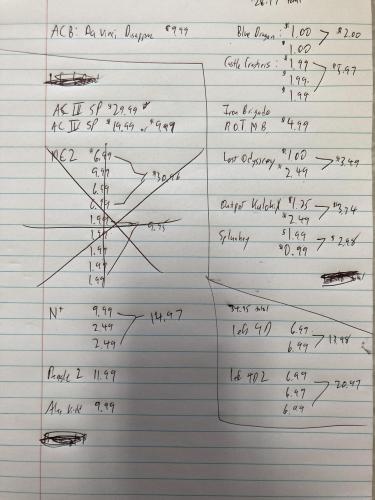 ACB: Da Vinci Disappear $9.99
AC IV SP $29.99
AC IV SP $19.99 or $9.99
ME2 $6.99
9.99
6.99
6.99
$30.96
1.99
1.99
1.99
1.99
1.99
9.95
N+ 9.99
2.49
2.49
14.97
Peggle 2 11.99
Alex Kidd 9.99
Blue Dragon: $1.00
$1.00
$2.00
Castle Crashers: $1.99
$1.99
$1.99
$5.97
Iron Brigade
ROTMB $4.99
Lost Odyssey $1.00
$2.49
$3.49
$1.25
$2.49
$3.74
$1.99
$0.99
$2.98
34.95 total
Left 4D 6.99
6.99
13.98
Left 4D2 6.99
6.99
6.99
20.97